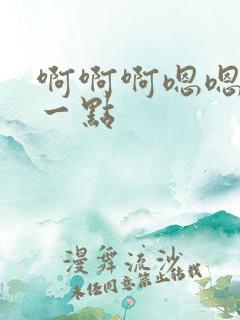 啊啊啊嗯嗯
一點
漫舞流沙
未经同意禁止转载